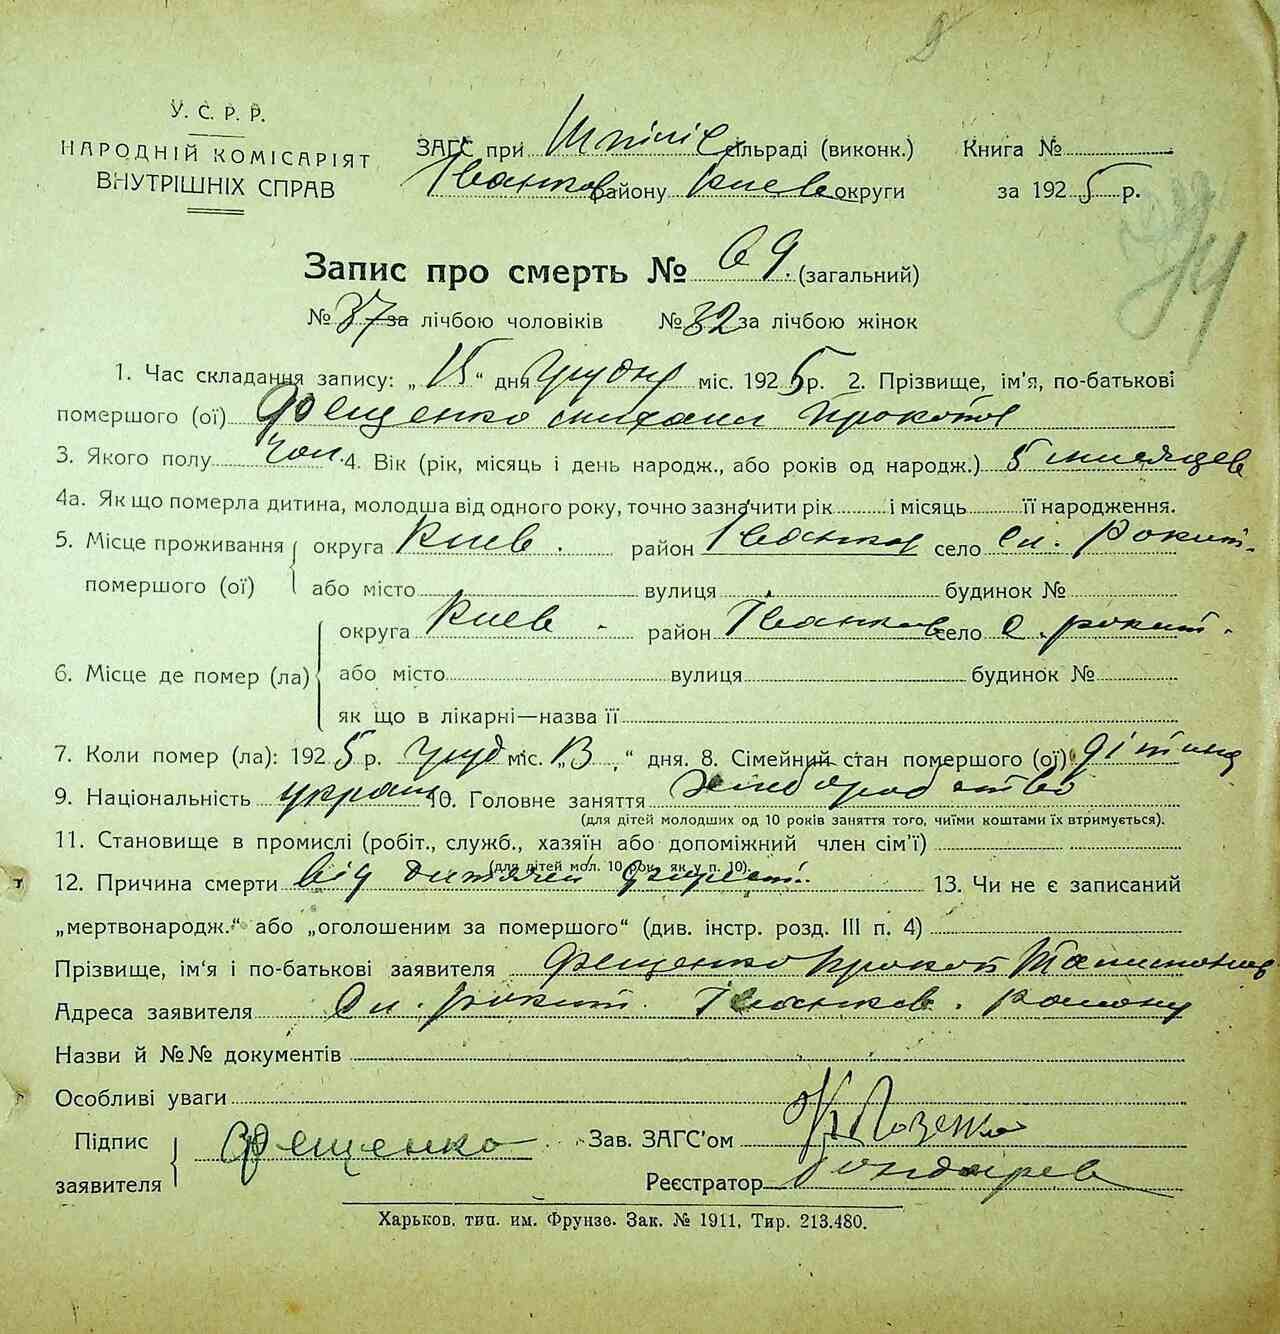 У. С. Р. Р.
НАРОДНІЙ КОМІСАРІЯТ
ВНУТРІШНІХ СПРАВ
ЗАГС при Шпилів сільраді (виконк.) Книга №
Іванков району Киев округи за 1925 р.
74
Запис про смерть № 69. (загальний)
№ 37 за лічбою чоловіків № 32 за лічбою жінок
1. Час складання запису: „15“ дня Грудня міс. 1925 р. 2. Прізвище, ім'я, по-батькові
помершого (ої) Фещенко Михаил Прокопов
3. Якого полу чол. 4. Вік (рік, місяць і день народж., або років од народж.) 5 мисяцев
4а. Як що померла дитина, молодша від одного року, точно зазначити рік і місяць її народження.
5. Місце проживання округа Киев. район Іванков село Сл. Рокит.
помершого (ої) або місто вулиця будинок №
округа Киев. район Іванков село с. рокит.
6. Місце де помер (ла) або місто вулиця будинок №
як що в лікарні—назва її
7. Коли помер (ла): 1925 р. груд міс. „13“ дня. 8. Сімейний стан помершого (ої) дітина
9. Національність украін 10. Головне заняття
(для дітей молодших од 10 років заняття того, чиїми коштами їх втримується).
11. Становище в промислі (робіт., служб., хазяїн або допоміжний член сім'ї)
(для дітей мол. 10 рок. як у п. 10).
12. Причина смерти від 13. Чи не є записаний
„мертвонародж.“ або „оголошеним за помершого“ (див. інстр. розд. III п. 4)
Прізвище, ім'я і по-батькові заявителя Фещенко Прокоп
Адреса заявителя Сл. рокит. Іванков. району
Назви й №№ документів
Особливі уваги
Підпис Фещенко Зав. ЗАГС'ом
заявителя Реєстратор Бондарев
Харьков. тип. им. Фрунзе. Зак. № 1911, Тир. 213.480.